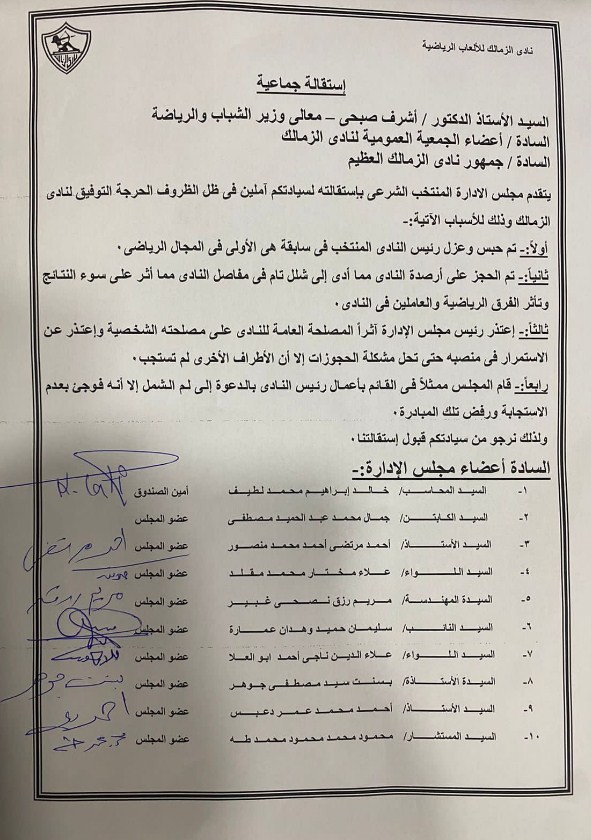 نادى الزمالك للألعاب الرياضية
إستقالة جماعية
السيد الأستاذ الدكتور / أشرف صبحى – معالى وزير الشباب والرياضة
السادة / أعضاء الجمعية العمومية لنادى الزمالك
السادة / جمهور نادى الزمالك العظيم
يتقدم مجلس الادارة المنتخب الشرعى بإستقالته لسيادتكم آملين فى ظل الظروف الحرجة التوفيق لنادى
الزمالك وذلك للأسباب الآتية:-
أولاً:- تم حبس وعزل رئيس النادى المنتخب فى سابقة هى الأولى فى المجال الرياضى٠
ثانياً:- تم الحجز على أرصدة النادى مما أدى إلى شلل تام فى مفاصل النادى مما أثر على سوء النتائج
وتأثر الفرق الرياضية والعاملين فى النادى٠
ثالثاً:- إعتذر رئيس مجلس الإدارة آثراً المصلحة العامة للنادى على مصلحته الشخصية وإعتذر عن
الاستمرار فى منصبه حتى تحل مشكلة الحجوزات إلا أن الأطراف الأخرى لم تستجب٠
رابعاً:- قام المجلس ممثلاً فى القائم بأعمال رئيس النادى بالدعوة إلى لم الشمل إلا أنه فوجئ بعدم
الاستجابة ورفض تلك المبادرة٠
ولذلك نرجو من سيادتكم قبول إستقالتنا٠
السادة أعضاء مجلس الإدارة:-
١- السيد المحاسب/ خالد إبراهيم محمد لطيف أمين الصندوق
٢- السيد الكابتن/ جمال محمد عبد الحميد مصطفى عضو المجلس
٣- السيد الأستاذ/ أحمد مرتضى أحمد محمد منصور عضو المجلس
٤- السيد اللواء/ علاء مختار محمد مقلد عضو المجلس
٥- السيدة المهندسة/ مريم رزق نصحى غبير عضو المجلس
٦- السيد النائب/ سليمان حميد وهدان عمارة عضو المجلس
٧- السيد اللواء/ علاء الدين ناجى أحمد ابو العلا عضو المجلس
٨- السيدة الأستاذة/ بسنت سيد مصطفى جوهر عضو المجلس
٩- السيد الأستاذ/ أحمد محمد عمر دعبس عضو المجلس
١٠- السيد المستشار/ محمود محمد محمود محمد طه عضو المجلس